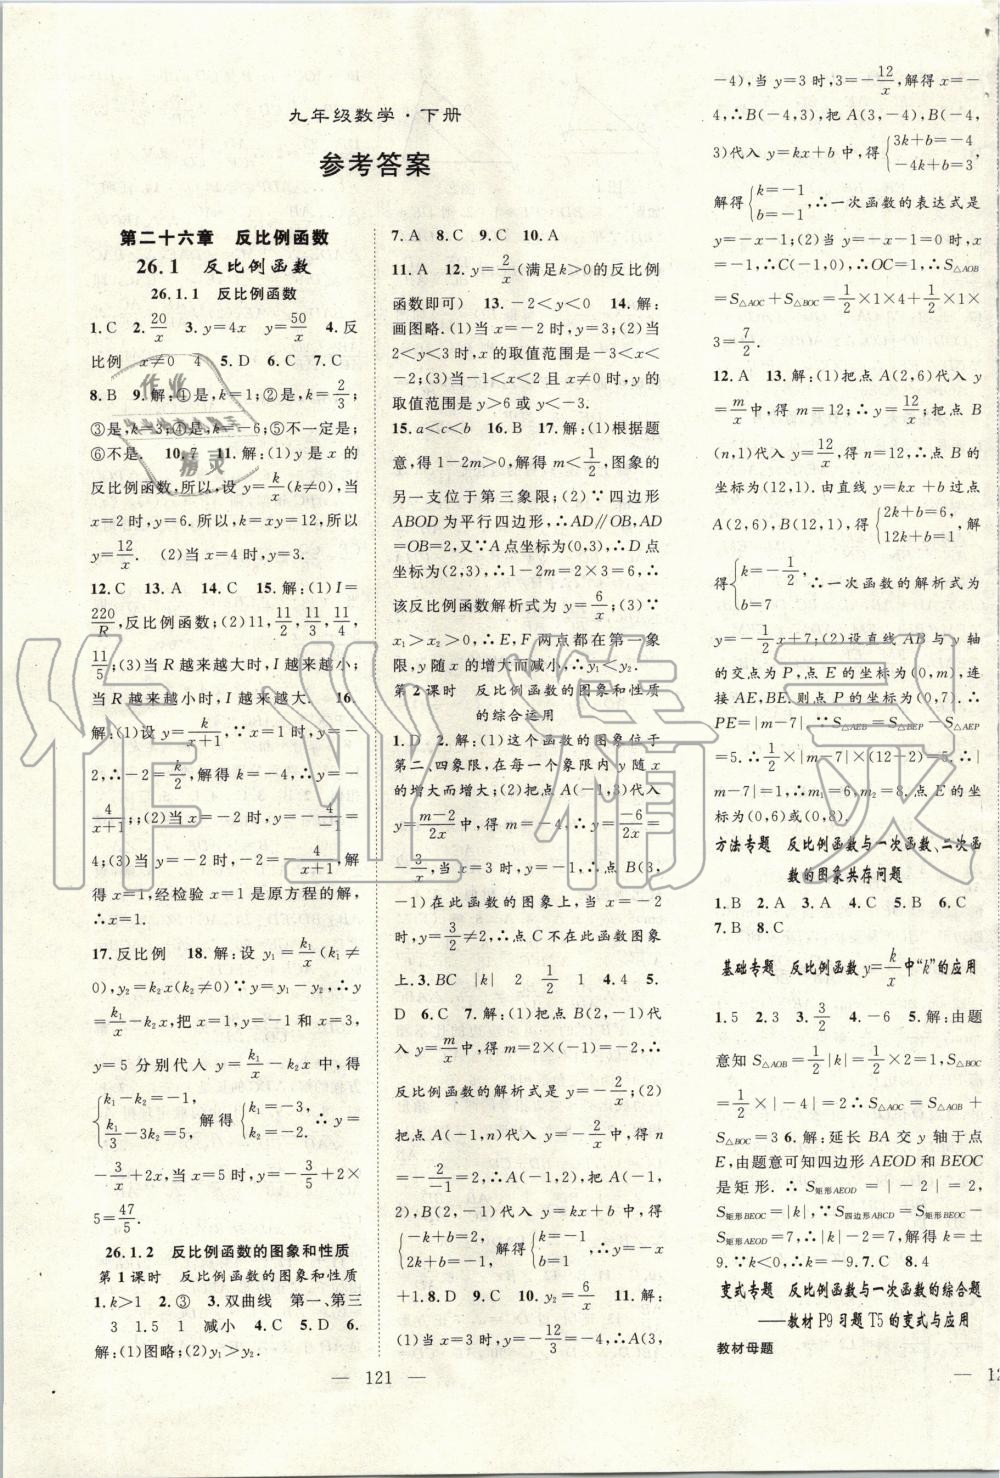 九年级数学·下册
参考答案
第二十六章 反比例函数
26.1 反比例函数
26.1.1 反比例函数
1.C 2.20/x 3.y=4x y=50/x 4.反
比例 x≠0 4 5.D 6.C 7.C
8.B 9.解:①是,k=1;②是,k=2/3;
③是,k=3;④是,k=-3;⑤不一定是;
⑥不是. 10.7 11.解:(1)y是x的
反比例函数,所以,设y=k/x(k≠0),当
x=2时,y=6.所以,k=xy=12,所以
y=12/x. (2)当x=4时,y=3.
12.C 13.A 14.C 15.解:(1)I=
220/R,反比例函数;(2)11,11/2,11/3,11/4,
11/5;(3)当R越来越大时,I越来越小;
当R越来越小时,I越来越大. 16.
解:(1)设y=k/(x+1),∵x=1时,y=-
2,∴-2=k/2,解得k=-4,∴y=-
4/(x+1);;(2)当x=-2时,y=-4/-1=
4;(3)当x=-2时,-2=-4/(x+1),解
得x=1,经检验x=1是原方程的解,
∴x=1.
17.反比例 18.解:设y₁=k₁/x(k₁≠
0),y₂=k₂x(k₂≠0),∵y=y₁-y₂,∴y=
k₁/x-k₂x,把x=1,y=-1和x=3,
y=5分别代入y=k₁/x-k₂x中,得
{k₁-k₂=-1, k₁/3-3k₂=5, 解得{k₁=-3, k₂=-2, ∴y=
-3/x+2x,当x=5时,y=-3/5+2×
5=47/5.
26.1.2 反比例函数的图象和性质
第1课时 反比例函数的图象和性质
1.k>1 2.③ 3.双曲线 第一、第三
3 1.5 1 减小 4.C 5.D 6.
解:(1)图略;(2)y₁>y₂.
7.A 8.C 9.C 10.A
11.A 12.y=2/x(满足k>0的反比例
函数即可) 13.-2<y<0 14.解:
画图略.(1)当x=-2时,y=3;(2)当
2<y<3时,x的取值范围是-3<x<
-2;(3)当-1<x<2且x≠0时,y的
取值范围是y>6或y<-3.
15.a<c<b 16.B 17.解:(1)根据题
意,得1-2m>0,解得m<1/2,图象的
另一支位于第三象限;(2)∵四边形
ABOD为平行四边形,∴AD∥OB,AD
=OB=2,又∵A点坐标为(0,3),∴D点
坐标为(2,3),∴1-2m=2×3=6,∴
该反比例函数解析式为y=6/x;(3)∵
x₁>x₂>0,∴E,F两点都在第一象
限,y随x的增大而减小,∴y₁<y₂.
第2课时 反比例函数的图象和性质
的综合运用
1.D 2.解:(1)这个函数的图象位于
第二、四象限,在每一个象限内y随x
的增大而增大;(2)把点A(-1,3)代入
y=(m-2)/2x中,得m=-4,∴y=-6/2x=
-3/x,当x=3时,y=-1,∴点B(3,
-1)在此函数的图象上,当x=-2
时,y=3/2≠2,∴点C不在此函数图象
上.3.BC |k| 2 1/2 1 4.4 5.
D 6.C 7.解:(1)把点B(2,-1)代
入y=m/x中,得m=2×(-1)=-2,∴
反比例函数的解析式是y=-2/x;(2)
把点A(-1,n)代入y=-2/x中,得n
=-2/-1=2,∴A(-1,2),把A(-1,
2),B(2,-1)代入y=kx+b中,得
{-k+b=2, 2k+b=-1, 解得{k=-1, b=1, ∴y=-x
+1.8.D 9.C 10.y₂=6/x 11.解:
(1)当x=3时,y=-12/3=-4,∴A(3,
-4),当y=3时,3=-12/x,解得x=-
4,∴B(-4,3),把A(3,-4),B(-4,
3)代入y=kx+b中,得{3k+b=-4 -4k+b=3,
解得{k=-1 b=-1,∴一次函数的表达式是
y=-x-1;(2)∴C(-1,0),∴OC=1,∴S△AOB
=S△AOC+S△BOC=1/2×1×4+1/2×1×
3=7/2.
12.A 13.解:(1)把点A(2,6)代入y
=m/x中,得m=12,∴y=12/x;把点B
(n,1)代入,得n=12,∴点B的
坐标为(12,1).由直线y=kx+b过点
A(2,6),B(12,1),得{2k+b=6, 12k+b=1, 解
得{k=-1/2, b=7 ∴一次函数的解析式为
y=-1/2x+7;(2)设直线AB与y轴
的交点为P,点E的坐标为(0,m),连
接AE,BE.则点P的坐标为(0,7).∴
PE=|m-7|,∵S△AEB=S△BEP-S△AEP
=5,∴1/2×|m-7|×(12-2)=5.∴
|m-7|=1,∴m₁=6,m₂=8.点E的
坐标为(0,6)或(0,8).
方法专题 反比例函数与一次函数、二次函
数的图象共存问题
1.B 2.A 3.A 4.C 5.B 6.C
7.B 8.C
基础专题 反比例函数y=k/x中“k”的应用
1.5 2.3 3.3/2 4.-6 5.解:由题
意知S△AOB=1/2|k|=1/2×2=1,S△BOC=
1/2×|-4|=2∴S△AOC=S△AOB+
S△BOC=3 6.解:延长BA交y轴于点
E,由题意可知四边形AEOD和BEOC
是矩形.∴S矩形AEOD=|-2|=2,
S矩形BEOC=|k|,∵S四边形ABCD=S矩形BEOC-
S矩形AEOD=7,∴|k|-2=7,解得k=±
9.∵k<0,∴k=-9. 7.C 8.4
变式专题 反比例函数与一次函数的综合题
——教材P9习题T5的变式与应用
教材母题
— 121 —
作业精灵